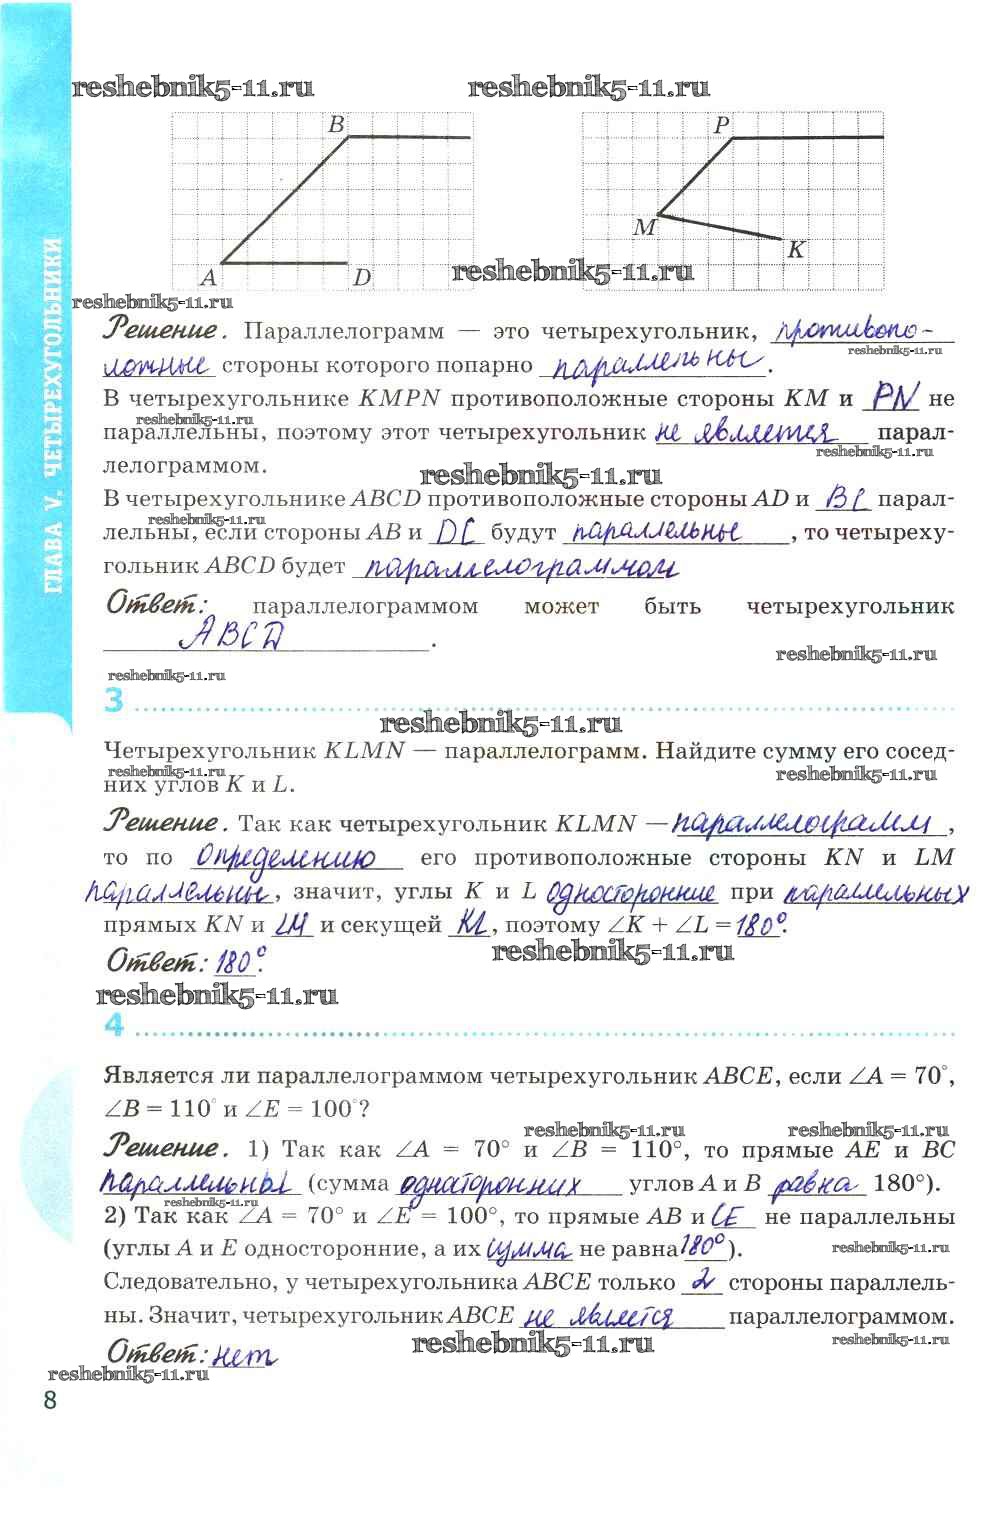 reshebnik5-11.ru reshebnik5-11.ru
B P
M K
A D reshebnik5-11.ru
reshebnik5-11.ru
ГЛАВА V. ЧЕТЫРЕХУГОЛЬНИКИ
Решение. Параллелограмм — это четырехугольник, противопо-
reshebnik5-11.ru
ложные стороны которого попарно параллельны.
В четырехугольнике KMPN противоположные стороны KM и PN не
reshebnik5-11.ru
параллельны, поэтому этот четырехугольник не является парал-
reshebnik5-11.ru
лелограммом.
reshebnik5-11.ru
В четырехугольнике ABCD противоположные стороны AD и BC парал-
reshebnik5-11.ru
лельны, если стороны AB и DC будут параллельны, то четыреху-
гольник ABCD будет параллелограммом
Ответ: параллелограммом может быть четырехугольник
ABCD.
reshebnik5-11.ru
reshebnik5-11.ru
3
reshebnik5-11.ru
Четырехугольник KLMN — параллелограмм. Найдите сумму его сосед-
reshebnik5-11.ru reshebnik5-11.ru
них углов K и L.
Решение. Так как четырехугольник KLMN — параллелограмм,
то по определению его противоположные стороны KN и LM
параллельны, значит, углы K и L односторонние при параллельных
прямых KN и LM и секущей KL, поэтому ∠K + ∠L = 180°.
reshebnik5-11.ru
Ответ: 180°.
reshebnik5-11.ru
4
Является ли параллелограммом четырехугольник ABCE, если ∠A = 70°,
∠B = 110° и ∠E = 100°?
reshebnik5-11.ru reshebnik5-11.ru
Решение. 1) Так как ∠A = 70° и ∠B = 110°, то прямые AE и BC
параллельны (сумма односторонних углов A и B равна 180°).
reshebnik5-11.ru
2) Так как ∠A = 70° и ∠E = 100°, то прямые AB и CE не параллельны
(углы A и E односторонние, а их сумма не равна 180°).
reshebnik5-11.ru
Следовательно, у четырехугольника ABCE только 2 стороны параллель-
ны. Значит, четырехугольник ABCE не является параллелограммом.
reshebnik5-11.ru reshebnik5-11.ru
Ответ: нет
reshebnik5-11.ru
8